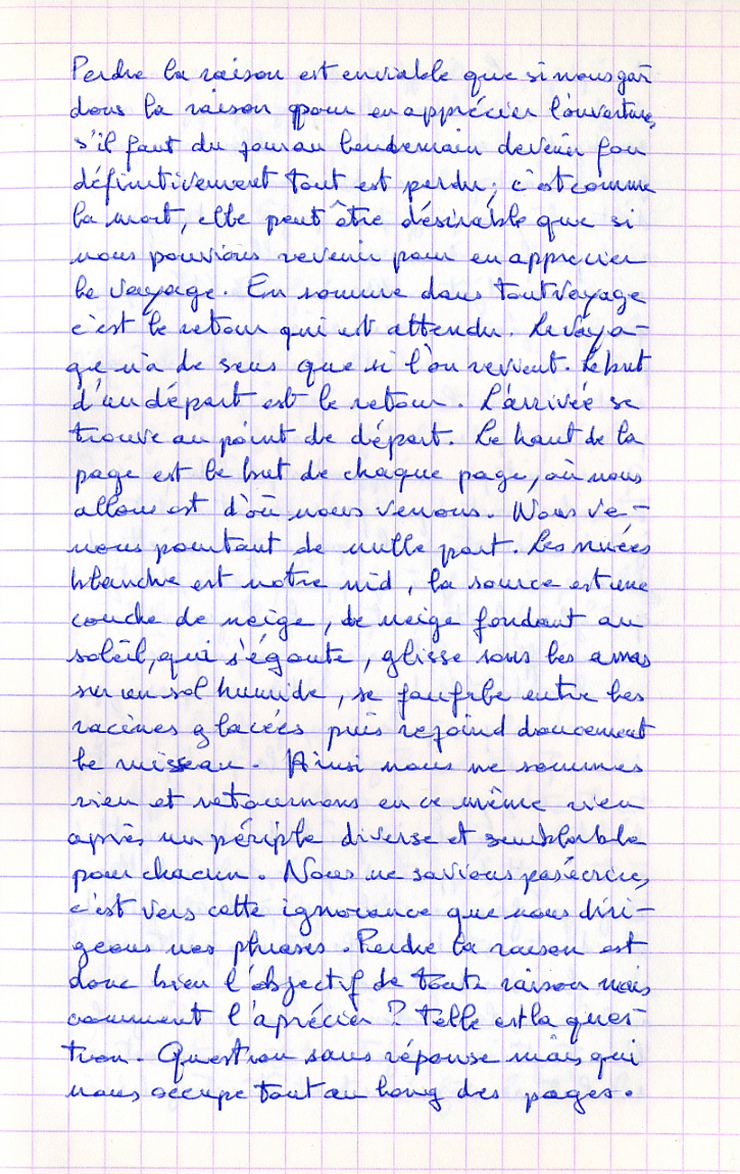 Perdre la raison est enviable que si nous gar
dons la raison pour en apprécier l'ouverture,
s'il faut du jour au lendemain devenir fou
définitivement tout est perdu; c'est comme
la mort, elle peut être désirable que si
nous pouvions revenir pour en apprecier
le voyage. En somme dans tout voyage
c'est le retour qui est attendu. Le voya-
ge n'a de sens que si l'on revient. Le but
d'un départ est le retour. L'arrivée se
trouve au point de départ. Le haut de la
page est le but de chaque page, où nous
allons est d'où nous venons. Nous ve-
nons pourtant de nulle part. Les nuées
blanche est notre nid, la source est une
couche de neige, de neige fondant au
soleil, qui s'égoute, glisse sous les amas
sur un sol humide, se faufile entre les
racines glacées puis rejoind doucement
le ruisseau. Ainsi nous ne sommes
rien et retournons en ce même rien
après un périple diverse et semblable
pour chacun. Nous ne savions pas écrire,
c'est vers cette ignorance que nous diri-
geons nos phrases. Perdre la raison est
donc bien l'objectif de toute raison mais
comment l'aprécier ? Telle est la ques-
tion. Question sans réponse mais qui
nous occupe tout au long des pages.